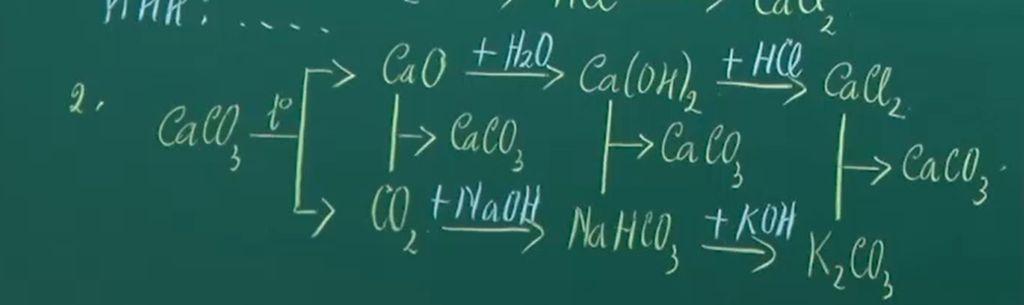 CaCl₂
2. CaCO₃ —t°→ CaO —+H₂O→ Ca(OH)₂ —+HCl→ CaCl₂
→ CaCO₃ → CaCO₃ → CaCO₃
CO₂ —+NaOH→ NaHCO₃ —+KOH→ K₂CO₃